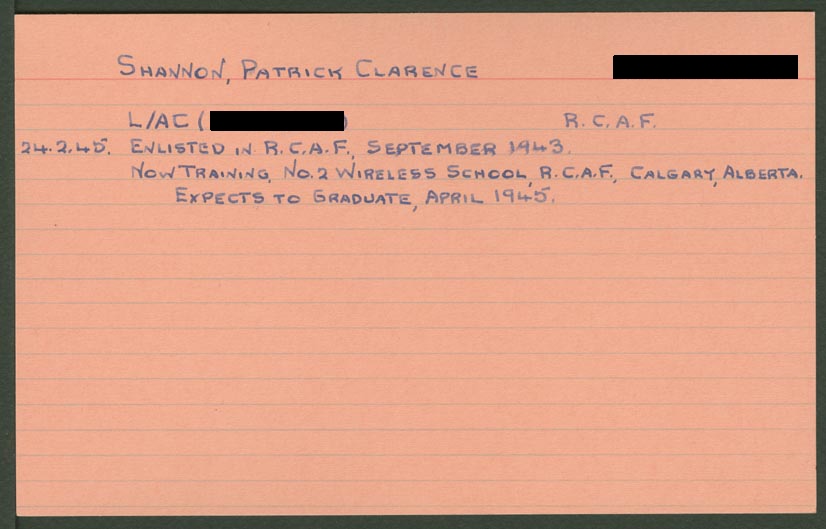 SHANNON, PATRICK CLARENCE
L/AC ( ) R.C.A.F.
24.2.45. ENLISTED IN R.C.A.F., SEPTEMBER 1943.
NOW TRAINING, NO.2 WIRELESS SCHOOL, R.C.A.F., CALGARY, ALBERTA.
EXPECTS TO GRADUATE, APRIL 1945.